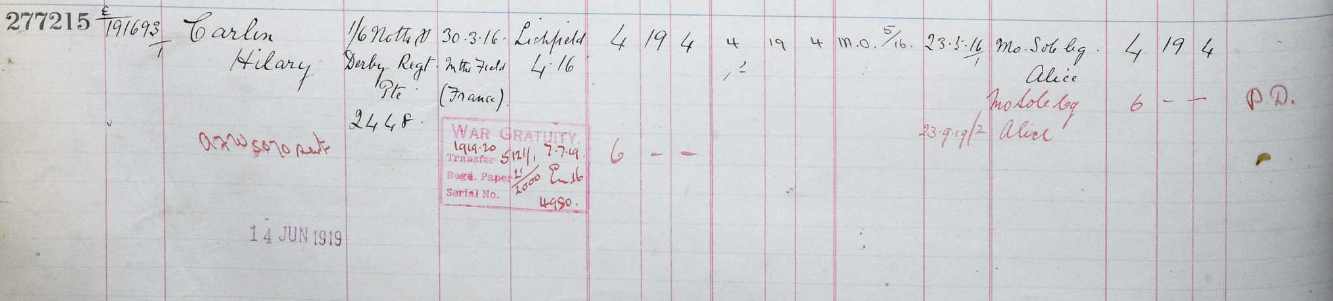 277215 £/191693/1 Carlin 1/6 Notts & 30.3.16. Lichfield 4 19 4 4 19 4 M.O. 5/16. 23.5.16 Mo. Sole leg. 4 19 4
Hilary Derby Regt. In the Field 4.16 Alice
Pte (France). Mo Sole leg 6 - - P.D.
2448. 23.9.19/2 Alice
WAR GRATUITY.
1919.20 7.7.19 6 - -
Transfer 5121/1
Regd. Paper 11/2000
Serial No. 4980.
14 JUN 1919